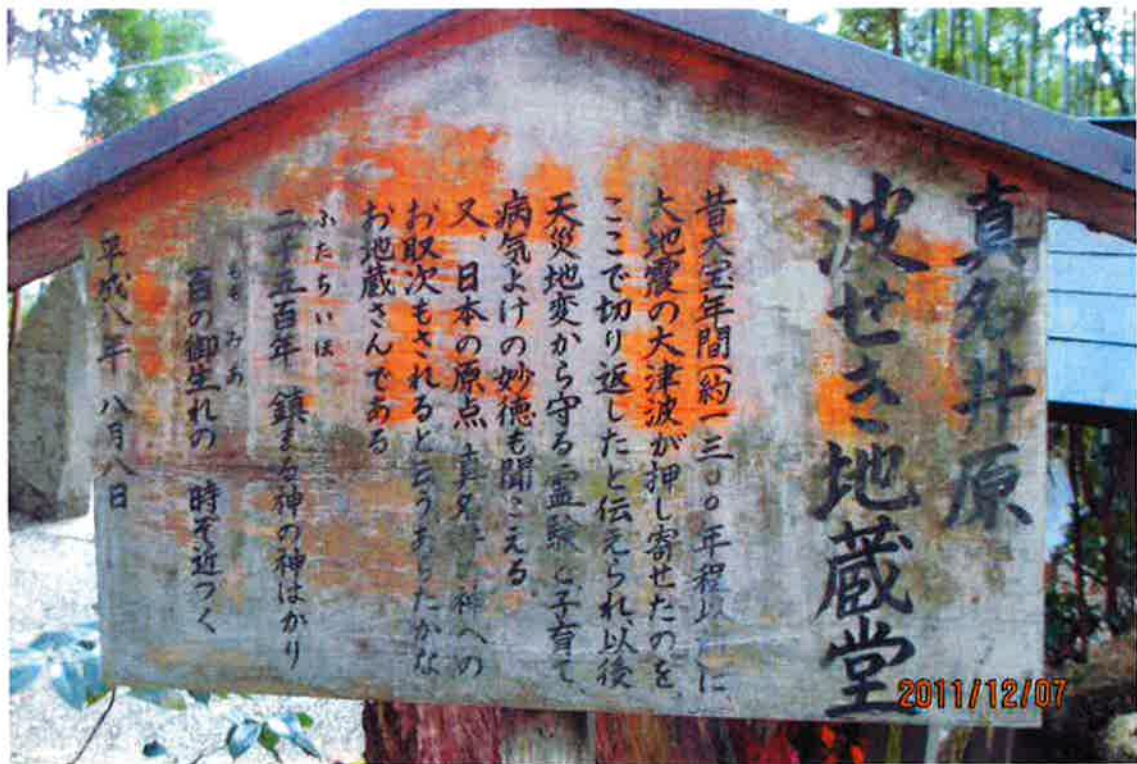 真名井原
波せき地蔵堂
昔大宝年間(約一三〇〇年程以前に
大地震の大津波が押し寄せたのを、
ここで切り返したと伝えられ、以後
天災地変から守る霊験と子育て、
病気よけの妙徳も聞こえる
又、日本の原点 真名井 神への
お取次もされると云うあらたかな
お地蔵さんである
ふたちいほ
二千五百年 鎮まる神の神はかり
もも みあ
百の御生れの 時ぞ近づく
平成八年 八月八日
2011/12/07